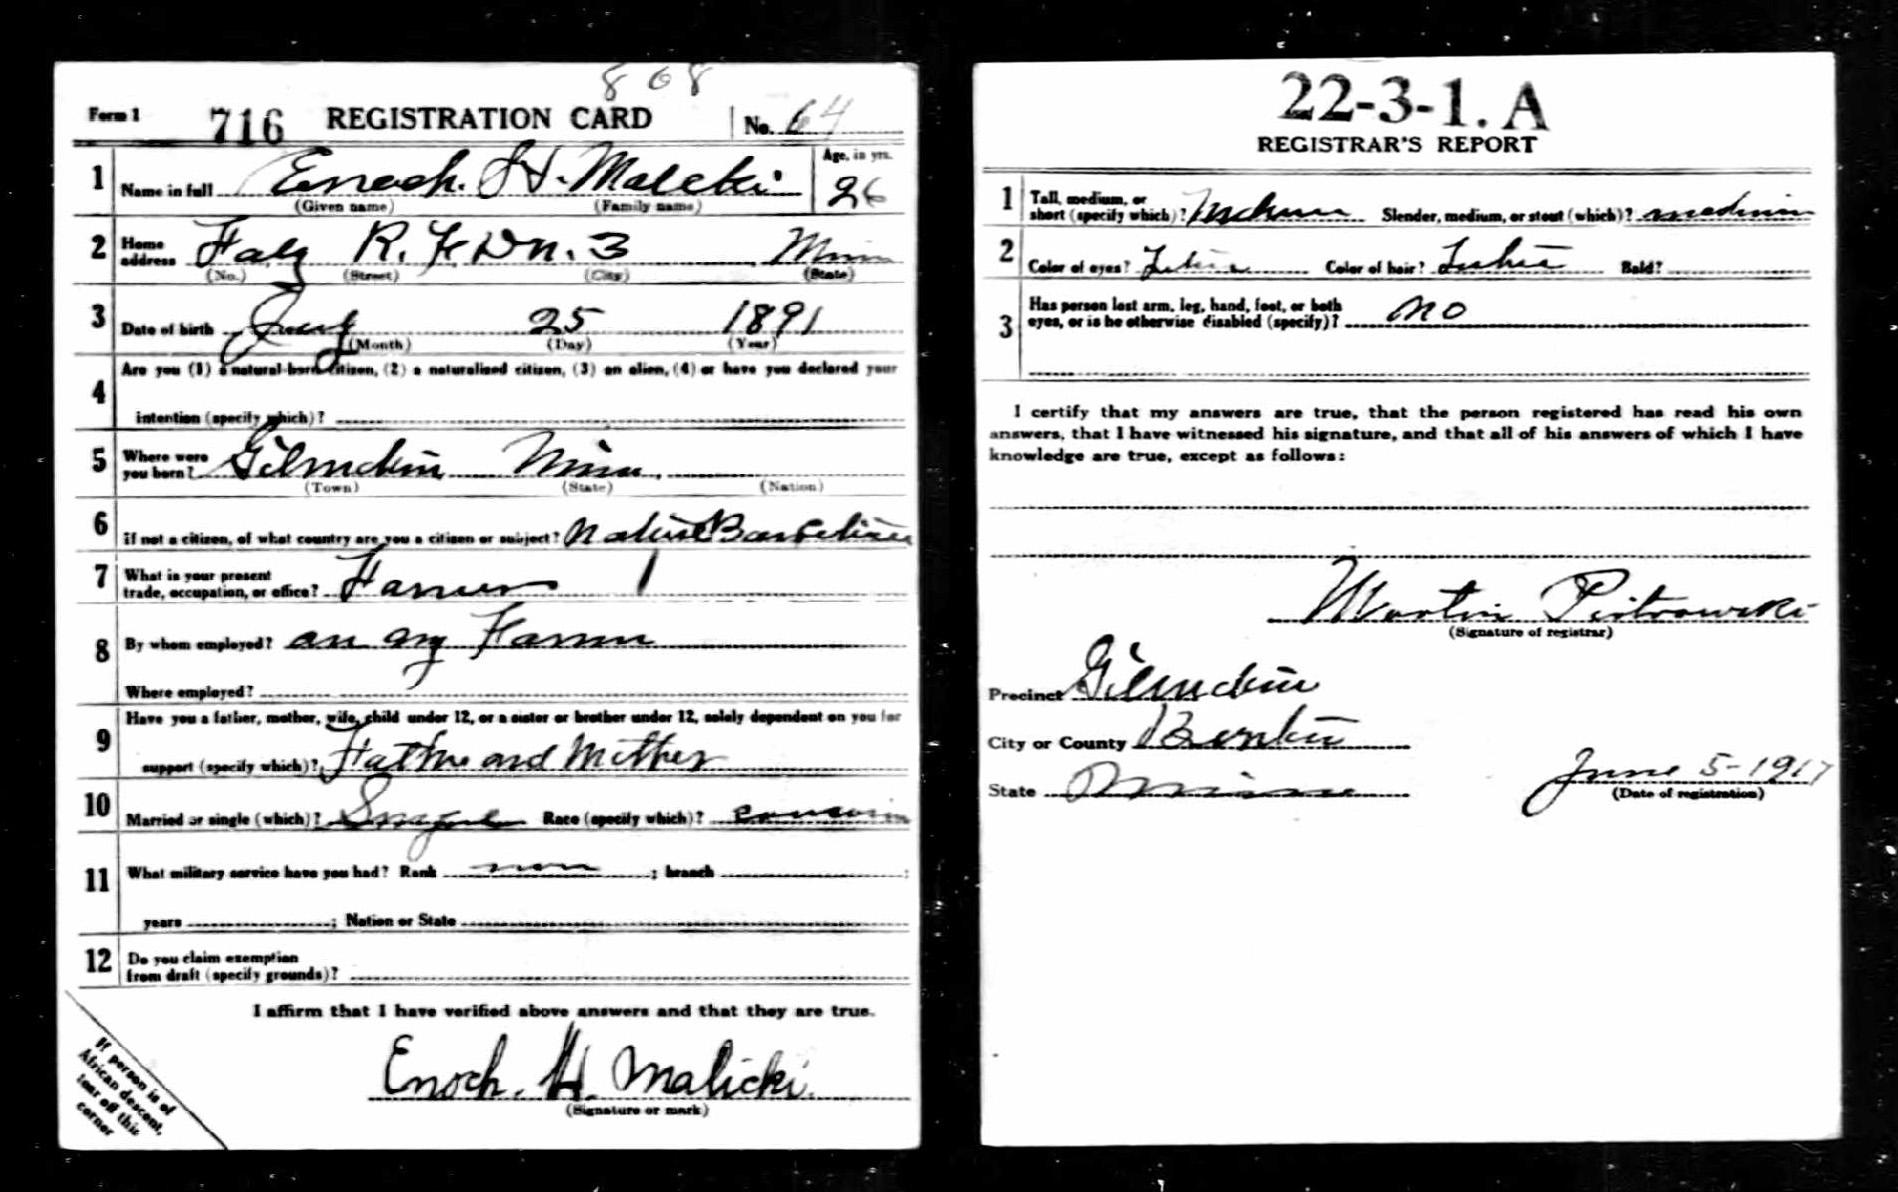 868
Form 1 716 REGISTRATION CARD No. 64
1 Name in full Enoch. H. Malicki Age, in yrs. 26
(Given name) (Family name)
2 Home address R. F. D n. 3 Minn
(No.) (Street) (City) (State)
3 Date of birth 25 1891
(Month) (Day) (Year)
4 Are you (1) a natural-born citizen, (2) a naturalized citizen, (3) an alien, (4) or have you declared your
intention (specify which)?
5 Where were you born? Minn.
(Town) (State) (Nation)
6 If not a citizen, of what country are you a citizen or subject?
7 What is your present trade, occupation, or office? Farmer
8 By whom employed? on my Farm
Where employed?
9 Have you a father, mother, wife, child under 12, or a sister or brother under 12, solely dependent on you for
support (specify which)? Father and Mother
10 Married or single (which)? Single Race (specify which)?
11 What military service have you had? Rank non ; branch ;
years ; Nation or State
12 Do you claim exemption from draft (specify grounds)?
I affirm that I have verified above answers and that they are true.
Enoch. H. Malicki.
(Signature or mark)
If person is of
African descent,
tear off this
corner
22-3-1. A
REGISTRAR'S REPORT
1 Tall, medium, or short (specify which)? Medium Slender, medium, or stout (which)? medium
2 Color of eyes? Color of hair? Bald?
3 Has person lost arm, leg, hand, foot, or both eyes, or is he otherwise disabled (specify)? no
I certify that my answers are true, that the person registered has read his own
answers, that I have witnessed his signature, and that all of his answers of which I have
knowledge are true, except as follows:
Martin Piotrowski
(Signature of registrar)
Precinct
City or County Benton
State Minn
June 5-1917
(Date of registration)